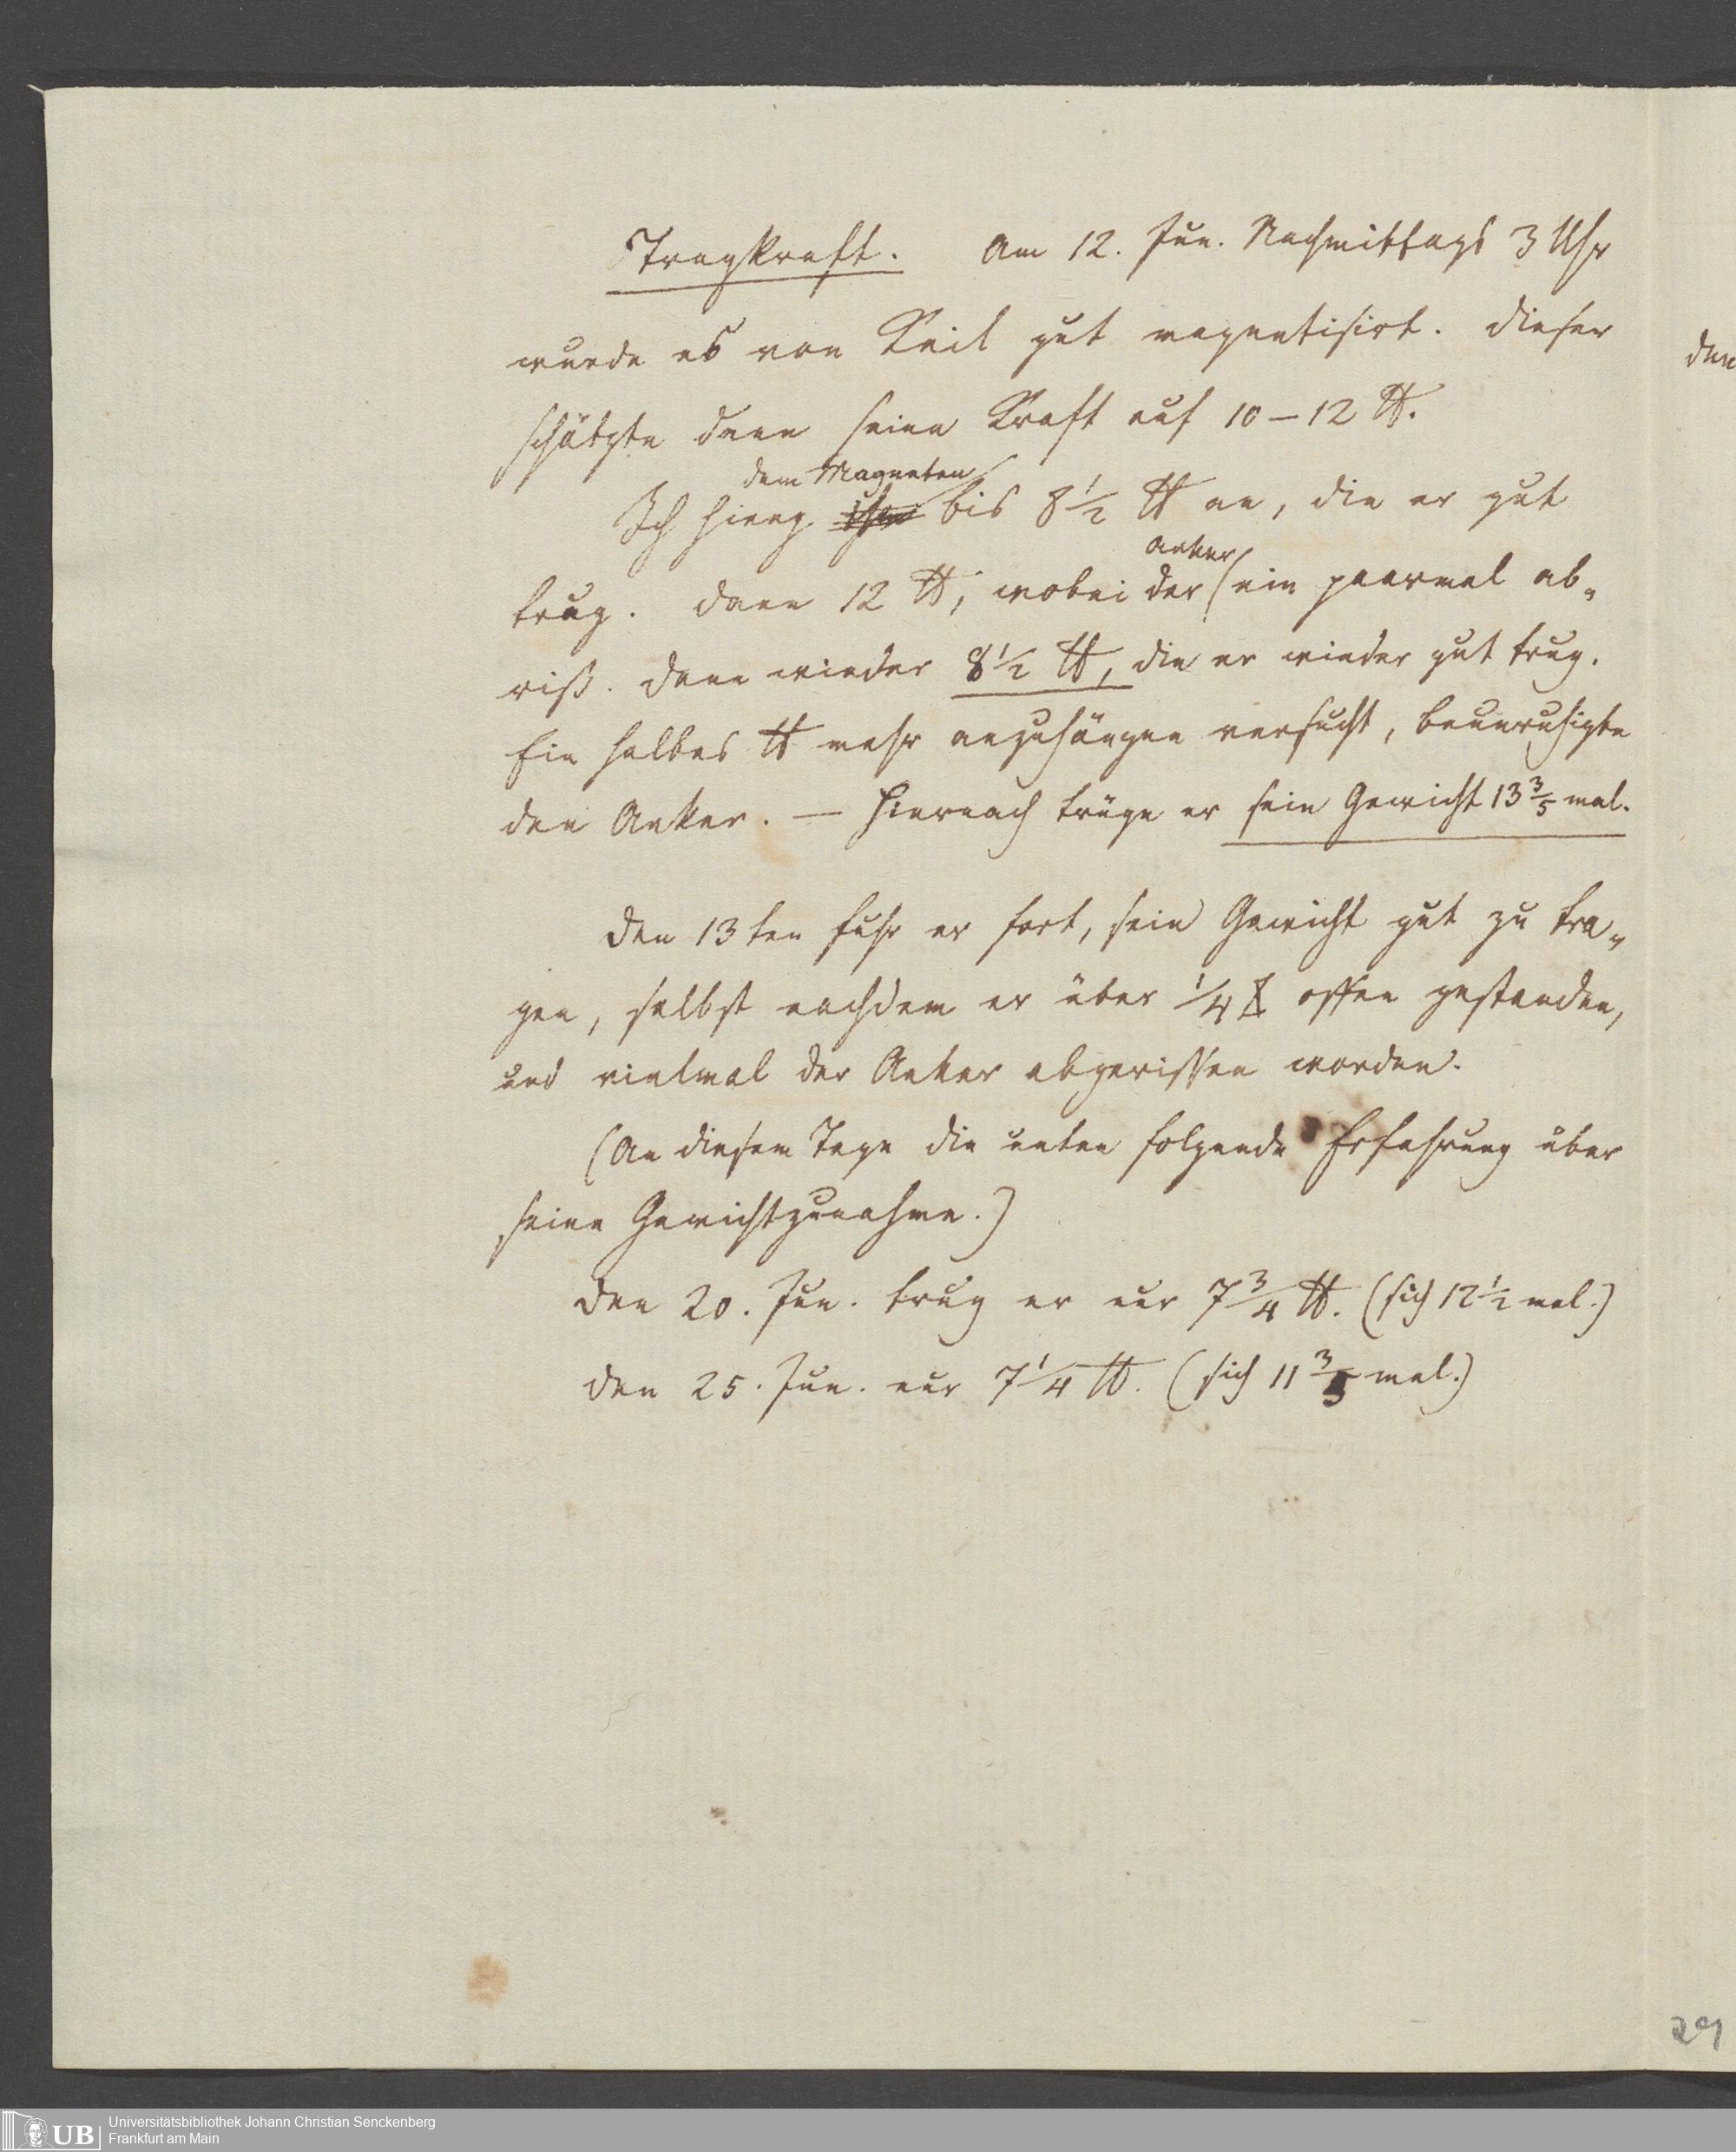 Tragkraft. Am 12. Jun. Nachmittags 3 Uhr
wurde es von Keil gut magnetisirt. Dieser
schätzte dann seine Kraft auf 10–12 ℔.
dem Magneten
Ich hieng ihm bis 8 1/2 ℔ an, die er gut
Anker
trug. Dann 12 ℔, wobei der ein paarmal ab-
riß. Dann wieder 8 1/2 ℔, die er wieder gut trug.
Ein halbes ℔ mehr anzuhängen versucht, beunruhigte
den Anker. — Hiernach trüge er sein Gewicht 13 3/5 mal.
Den 13ten fuhr er fort, sein Gewicht gut zu tra-
gen, selbst nachdem er über 1/4 offen gestanden,
und vielmal der Anker abgerissen worden.
(An diesem Tage die unten folgende Erfahrung über
seine Gewichtzunahme.)
Den 20. Jun. trug er nur 7 3/4 ℔. (sich 12 1/2 mal.)
Den 25. Jun. nur 7 1/4 ℔. (sich 11 3/5 mal.)
den
29
UB
Universitätsbibliothek Johann Christian Senckenberg
Frankfurt am Main